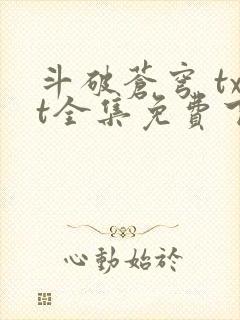 斗破蒼穹 tx
t全集免費
心動始於